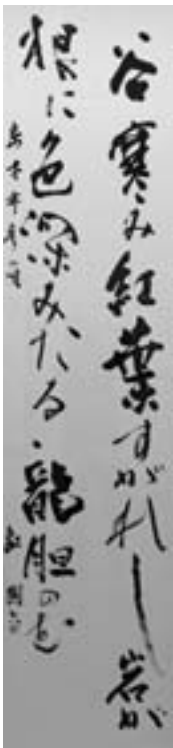 谷寒み紅葉すがれし岩が
根に色深みたる龍胆の花